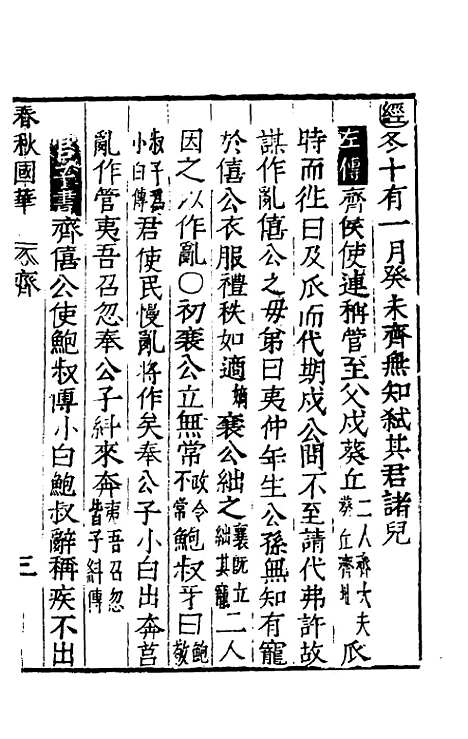 經冬十有一月癸未齊無知弑其君諸兒
左傳齊侯使連稱管至父戍葵丘二人齊大夫葵丘齊地瓜
時而徃曰及瓜而代期戍公問不至請代弗許故
謀作亂僖公之毋弟曰夷仲年生公孫無知有寵
於僖公衣服禮秩如適嫡襄公絀之襄既立絀其寵二人
因之以作亂○初襄公立無常政令不常鮑叔牙曰鮑敬
叔子君小白傅君使民慢亂將作矣奉公子小白出奔莒
亂作管夷吾召忽奉公子糾來奔夷吾召忽皆子糾傅
齊僖公使鮑叔傅小白鮑叔辭稱疾不出
春秋國華 齊 三